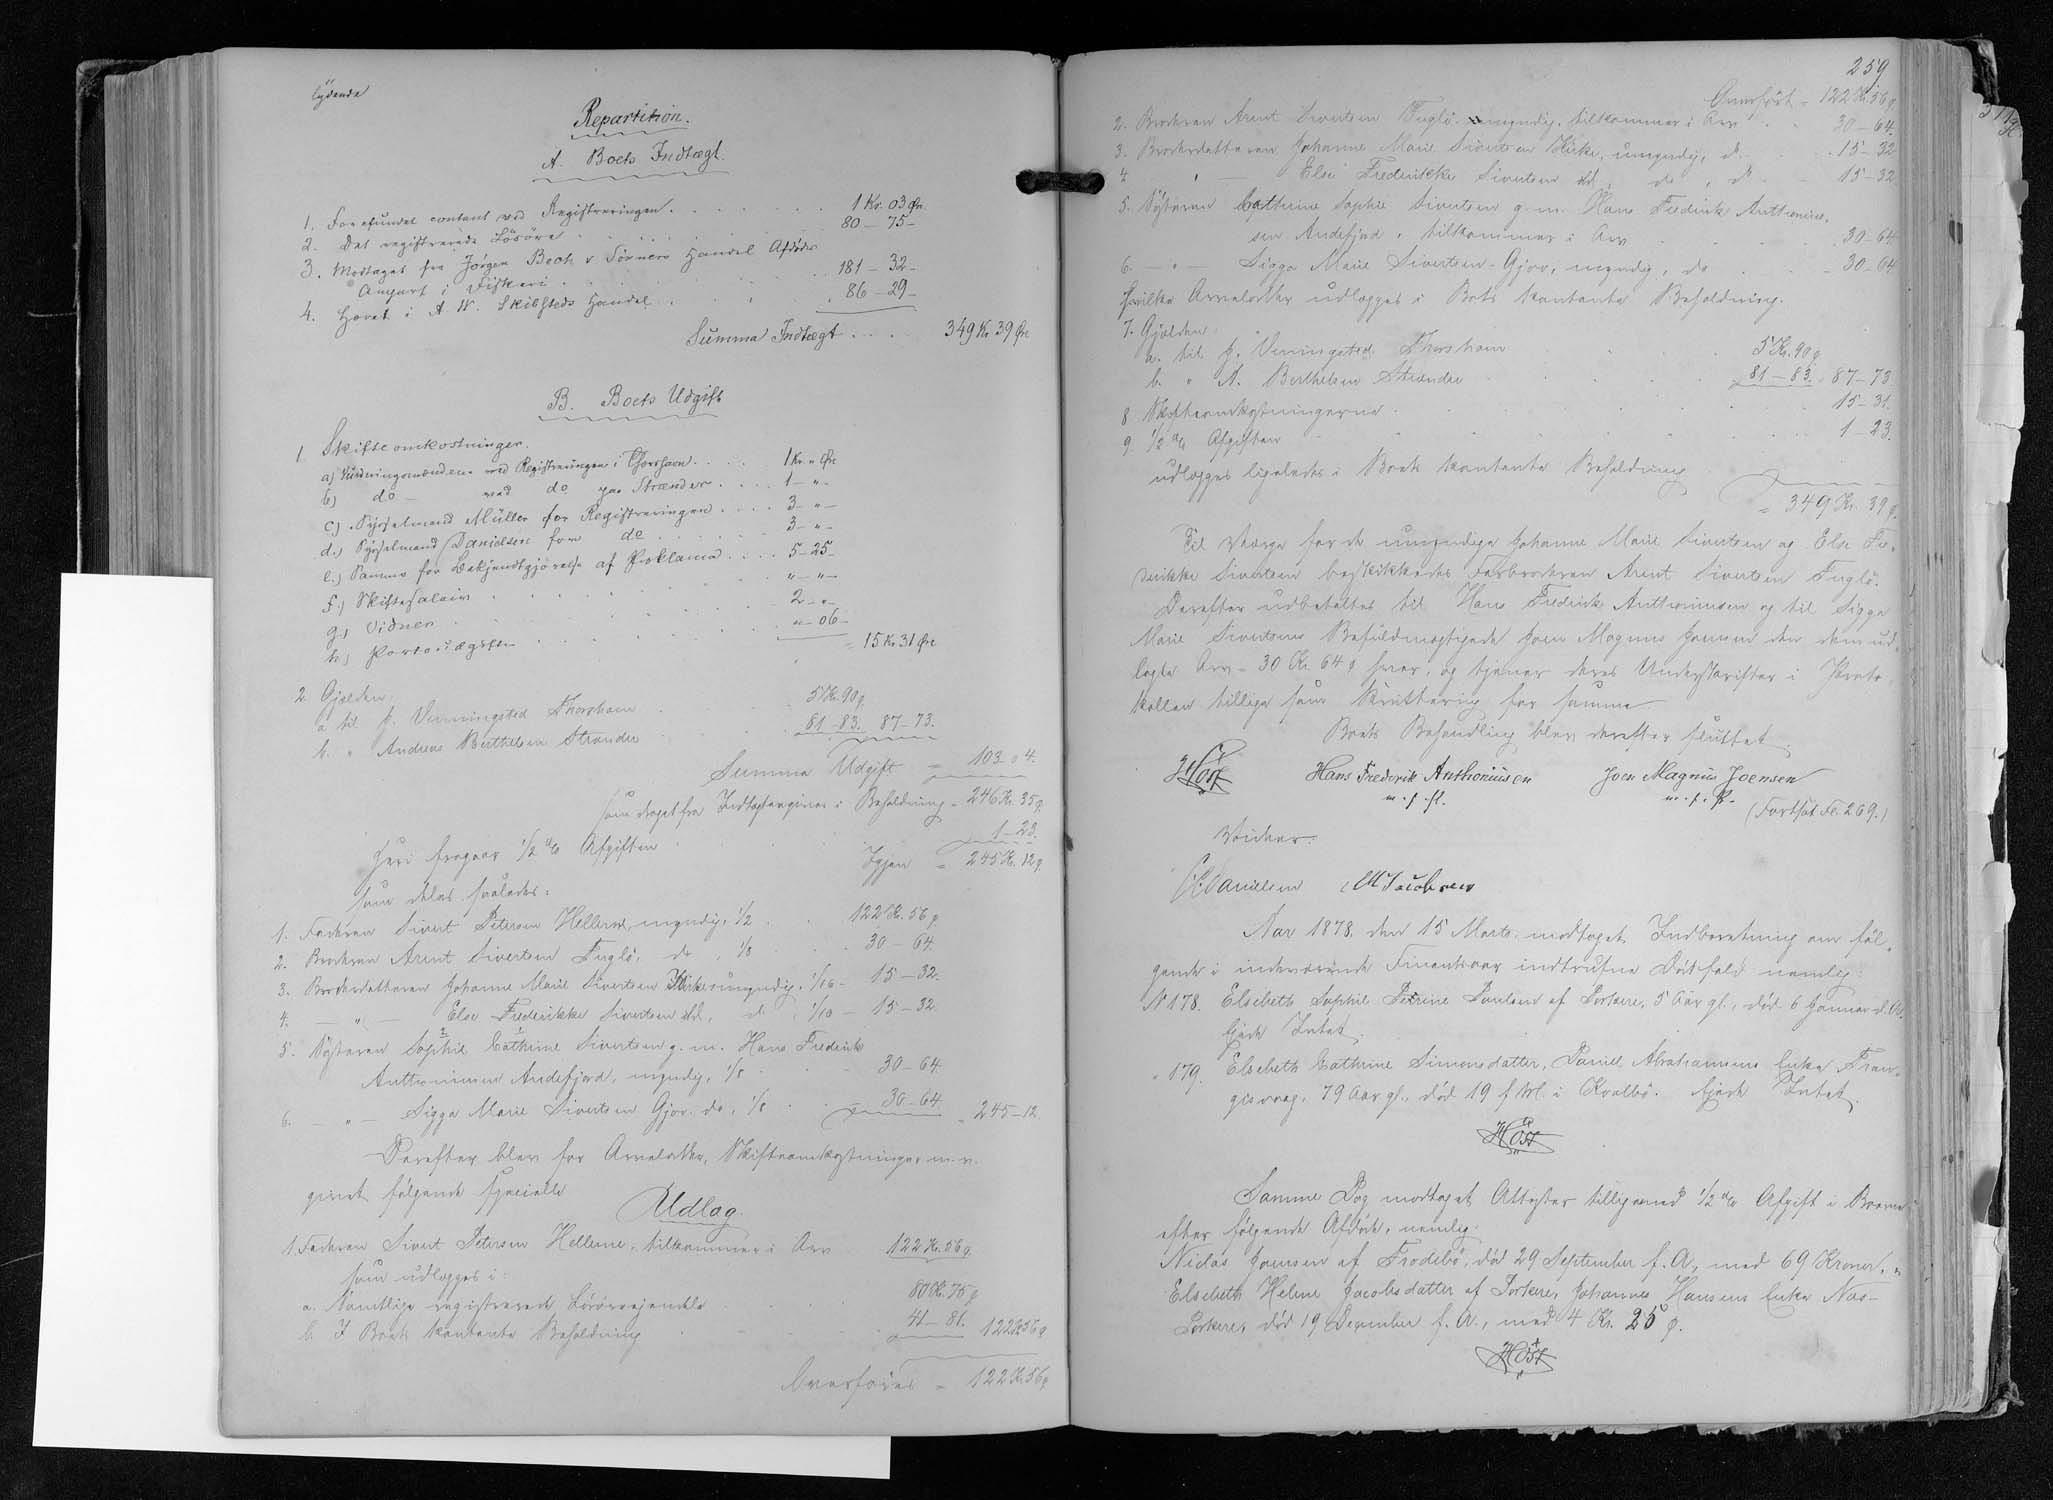 lydende
Repartition.
A. Boets Indtægt.
1. Forefundet contant ved Registreringen . . . . . . . 1 Kr. 03 Ør.
2. Det registrerede Lösöre . . . . . . . 80 — 75 —
3. Modtaget fra Jørgen Bech & Sönners Handel Afdødes
Anpart i Fiskeri . . . . . . . 181 — 32 —
4. Hævet i A. W. Skibsteds Handel . . . . 86 — 29 —
Summa Indtægt . . . . 349 Kr 39 Ør
B. Boets Udgift
1 Skifteomkostninger.
a) Vurderingsmændene ved Registreringen i Thorshavn . . . . 1 Kr. " Ør
b) do — ved do paa Strænder . . . . 1 — " —
c) Sysselmand Müller for Registreringen . . . . 3 — " —
d.) Sysselmand Danielsen for do . . . . . 3 — " —
e.) Samme for Bekjendtgjörelse af Proklama . . . . 5 — 25 —
f.) Skiftesalair . . . . . " — " —
g.) Vidner . . . . . 2 — " —
h.) Portoudgifter . . . . . " — 06 —
= 15 Kr 31 Ør
2 Gjælden:
a til J. Venningsted Thorshavn . . . 5 Kr. 90 ø
b. " Andreas Berthelsen Strænder . . . 81 — 83. 87 — 73.
Summa Udgift = 103 " 4.
som draget fra Indtægten giver i Beholdning = 246 Kr. 35 ø.
Heri fragaar ½ % Afgiften . . . 1 — 23.
Igjen = 245 Kr. 12 ø.
som deles saaledes:
1. Faderen Sivert Petersen Hellerne, myndig, 1/2 . . 122 Kr. 56 ø
2. Broderen Arent Sivertsen Fuglö, do, 1/8 . . . 30 — 64.
3. Broderdatteren Johanne Marie Sivertsen Kirke umyndig, 1/16 — 15 — 32.
4. — " — Else Frederikke Sivertsen ibd, do, 1/16 — 15 — 32.
5. Systeren Sophie Cathrine Sivertsen g. m. Hans Frederik
Anthoniusen Andefjord, myndig, 1/8 . . . 30 — 64.
6. — " — Sigga Marie Sivertsen Gjov. do, 1/8 . . 30 — 64. = 245 — 12.
Derefter blev for Arvelodder, Skifteomkostninger m. v.
givet følgende specielle
Udlog.
1. Faderen Sivert Petersen Hellerne, tilkommer i Arv 122 Kr. 56 ø.
som udlægges i:
a. Samtlige registrerede Lösöreiendele . . . 80 Kr. 75 ø
b. I Boets kontante Beholdning . . . 41 — 81. 122 Kr 56 ø
Overføres = 122 Kr 56 ø
259
Overført = 122 Kr. 56 ø
2. Broderen Arent Sivertsen Fuglö. myndig, tilkommer i Arv . . 30 — 64.
3. Broderdatteren Johanne Marie Sivertsen Kirke, umyndig, do . . 15 — 32
4 " — Else Frederikke Sivertsen ibd, do, do — 15 — 32
5. Systeren Cathrine Sophie Sivertsen g. m. Hans Frederik Anthoniu-
sen Andefjord, tilkommer i Arv . . . 30 — 64
6. — " — Sigga Marie Sivertsen — Gjov, myndig, do . . . 30 — 64
hvilke Arvelodder udlægges i Boets kontante Beholdning.
7. Gjælden:
a. til J. Venningsted Thorshavn . . . 5 Kr. 90 ø
b. " A. Berthelsen Strænder . . . 81 — 83. 87 — 73.
8 Skifteomkostningerne . . . . 15 — 31.
9. ½ % Afgiften . . . . 1 — 23.
udlægges ligeledes i Boets kontante Beholdning
= 349 Kr. 39 ø.
Til Værge for de umyndige Johanne Marie Sivertsen og Else Fre-
derikke Sivertsen beskikkedes Farbroderen Arent Sivertsen Fuglö.
Derefter udbetaltes til Hans Frederik Anthoniusen og til Sigga
Marie Sivertsens Befuldmægtigede Joen Magnus Joensen den dem ud-
lagte Arv = 30 Kr. 64 ø hver, og tjener deres Underskrifter i Proto-
kollen tillige som Kvittering for samme
Boets Behandling blev derefter sluttet.
Höst Hans Frederik Anthoniusen Joen Magnus Joensen
m. f. P. m. f. P.
(Fortsat Fl. 269.)
Vidner:
Danielsen M Jacobsen
Aar 1878. den 15 Marts. modtoget Indberetning om föl-
gende i indeværende Finantsaar indtrufne Dödsfald nemlig:
N 178. Elsebeth Sophie Petrine Poulsen af Porkere, 5 Aar gl., död 6 Januar d. A.
Ejede Intet.
" 179. Elsebeth Cathrine Simonsdatter, Daniel Abrahamsens Enke Fram-
79 Aar gl., död 19 f. M. i Kvalbö. Ejede Intet.
Höst
Samme Dag modtoget Attester tilligemed ½ % Afgift i Boerne
efter følgende Afdöde, nemlig:
Niclas Joensen af Frodebö, död 29 September f. A., med 69 Kroner, "
Elsebeth Helene Jacobsdatter af Porkere, Johannes Hansens Enke Næs-
Porkere, död 19 December f. A., med 4 Kr. 25 ø.
Höst